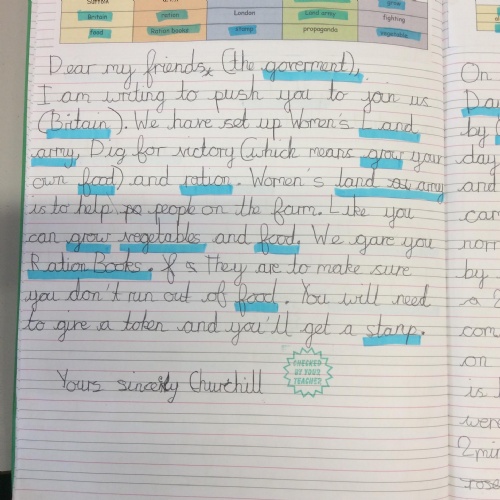 Suffolk
grow
Britain
ration
London
Land army
fighting
food
Ration books
stamp
propaganda
vegetable
Dear my friends, (the goverment),
I am writing to push you to join us
(Britain). We have set up Women's Land
army, Dig for victory (which means grow your
own food) and ration. Women's land army
is to help people on the farm. Like you
can grow vegetables and food. We gave you
Ration Books. They are to make sure
you don't run out of food. You will need
to give a token and you'll get a stamp.
Yours sincerly Churchill
CHECKED
BY YOUR
TEACHER
On
Da
by
day
and
car
norm
by
a
com
on
is
wer
2min
rose